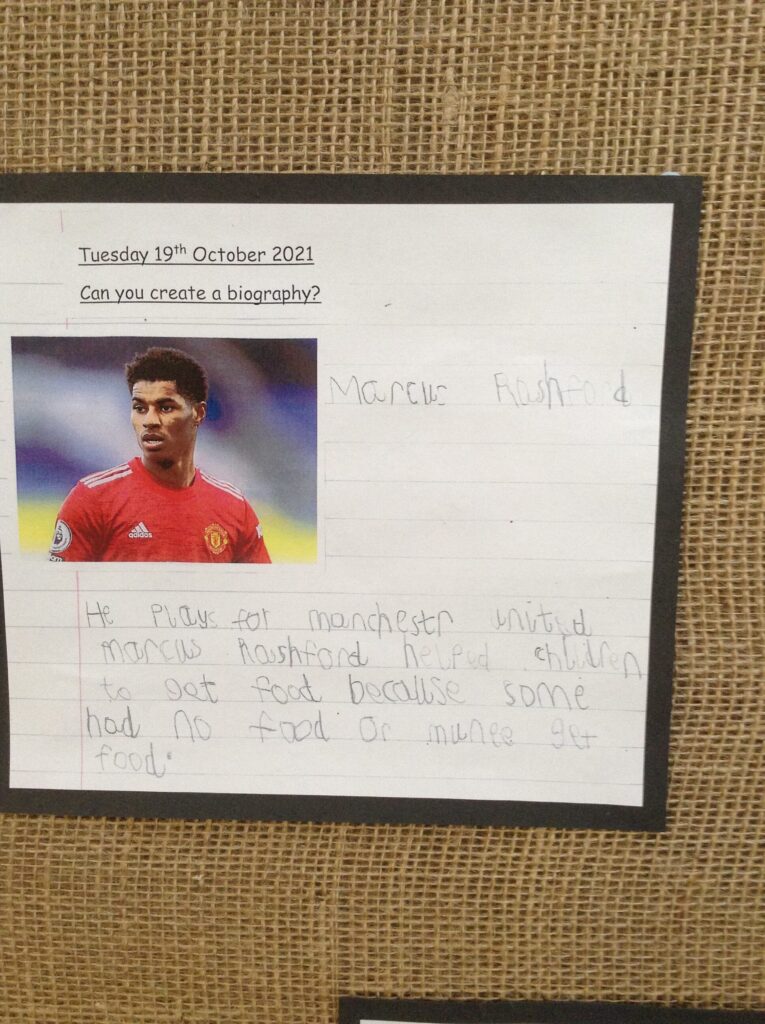 Tuesday 19th October 2021
Can you create a biography?
Marcus Rashford
adidas
He plays for manchestr united
marcus Rashford helped children
to get food because some
had no food or munee get
food.